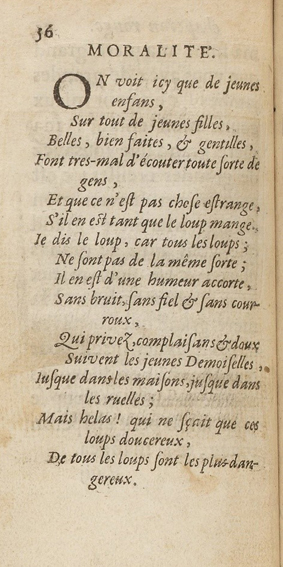 56
MORALITE'.
ON voit icy que de jeunes
enfans,
Sur tout de jeunes filles,
Belles, bien faites, & gentilles,
Font tres-mal d'écouter toute sorte de
gens,
Et que ce n'est pas chose estrange,
S'il en est tant que le loup mange.
Ie dis le loup, car tous les loups;
Ne sont pas de la même sorte;
Il en est d'une humeur accorte,
Sans bruit, sans fiel & sans cour-
roux,
Qui privez, complaisans & doux
Suivent les jeunes Demoiselles,
Iusque dans les maisons, jusque dans
les ruelles;
Mais helas! qui ne sçait que ces
loups doucereux,
De tous les loups sont les plus dan-
gereux.